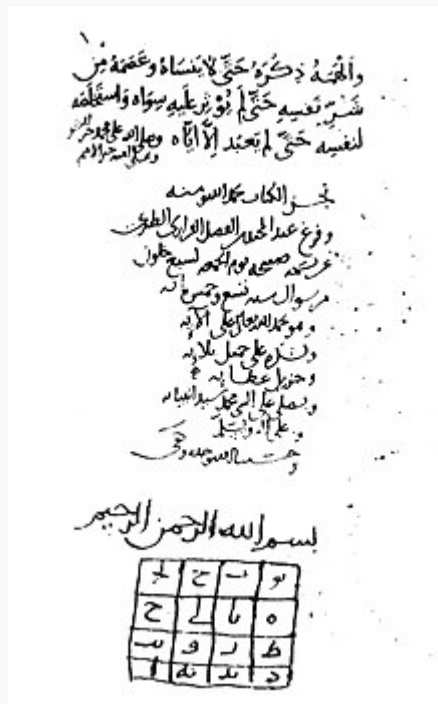 وألهمهُ ذِكرَهُ حَتَّى لا يَنسَاهُ وعَصَمَهُ مِن
شَرِّ نَفسِهِ حَتَّى لَم يُؤثِر عليهِ سِوَاه وَاستَخلَصَه
لنفسِهِ حَتَّى لم يَعبُد إلَّا إيَّاه وصلى الله على محمد خير
وعلى
نجز الكتاب بحمد الله ومنه
وفرغ عبد المجيد بن الفضل الفراري الطبري
صبيحة يوم الجمعة لسبع خلون
من شوال سنة تسع وخمسمائة
وهو يحمد الله تعالى على آلائه
على جميل بلائه
وجزيل عطائه
ويصلي على النبي محمد سيد أنبيائه
وعلى آله ويسلم
وحسبنا الله وحده وكفى
بسم الله الرحمن الرحيم
يو ب ج يج
ه يا ي ح
ط ز و يب
د يد يه ا